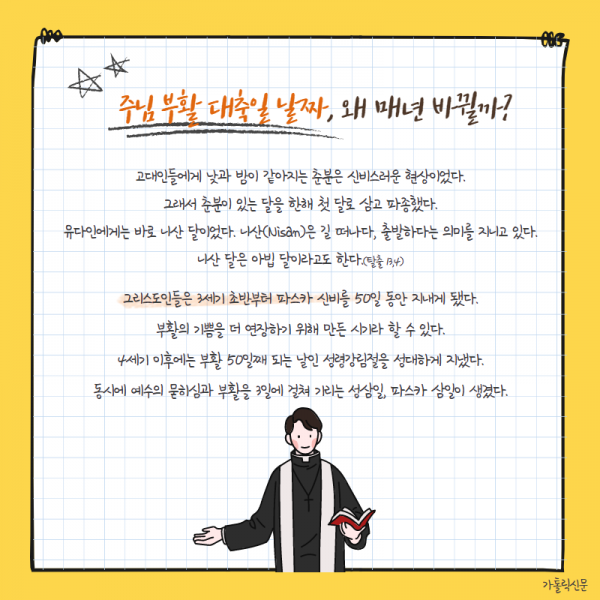 주님 부활 대축일 날짜, 왜 매년 바뀔까?
고대인들에게 낮과 밤이 같아지는 춘분은 신비스러운 현상이었다.
그래서 춘분이 있는 달을 한해 첫 달로 삼고 파종했다.
유다인에게는 바로 니산 달이었다. 니산(Nisân)은 길 떠나다, 출발하다는 의미를 지니고 있다.
니산 달은 아빕 달이라고도 한다.(탈출 13,4)
그리스도인들은 3세기 초반부터 파스카 신비를 50일 동안 지내게 됐다.
부활의 기쁨을 더 연장하기 위해 만든 시기라 할 수 있다.
4세기 이후에는 부활 50일째 되는 날인 성령강림절을 성대하게 지냈다.
동시에 예수의 묻히심과 부활을 3일에 걸쳐 기리는 성삼일, 파스카 삼일이 생겼다.
가톨릭신문